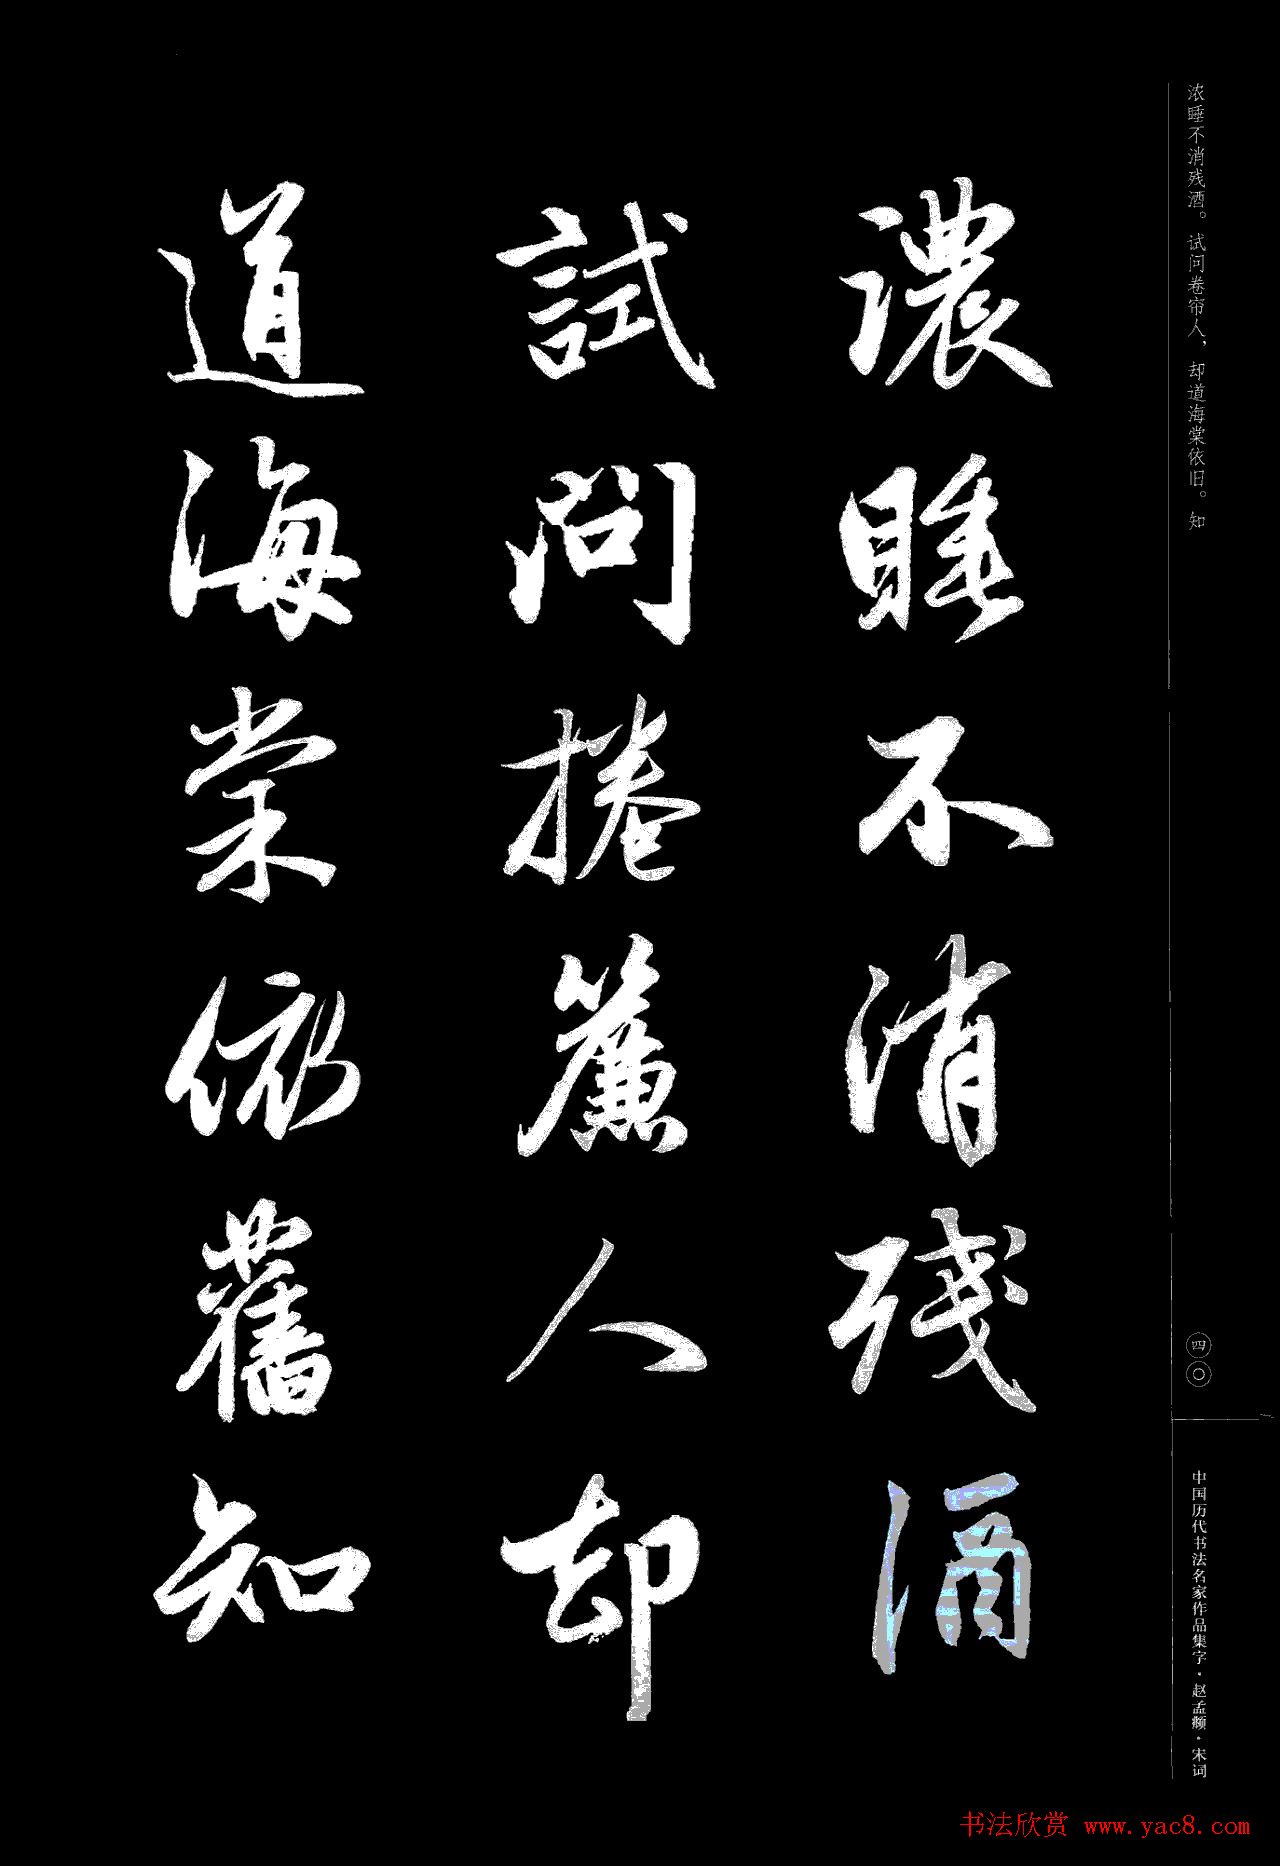 濃睡不消殘酒
試問捲簾人却
道海棠依舊知
浓睡不消残酒。试问卷帘人，却道海棠依旧。知
四〇
中国历代书法名家作品集字·赵孟頫·宋词
书法欣赏 www.yac8.com